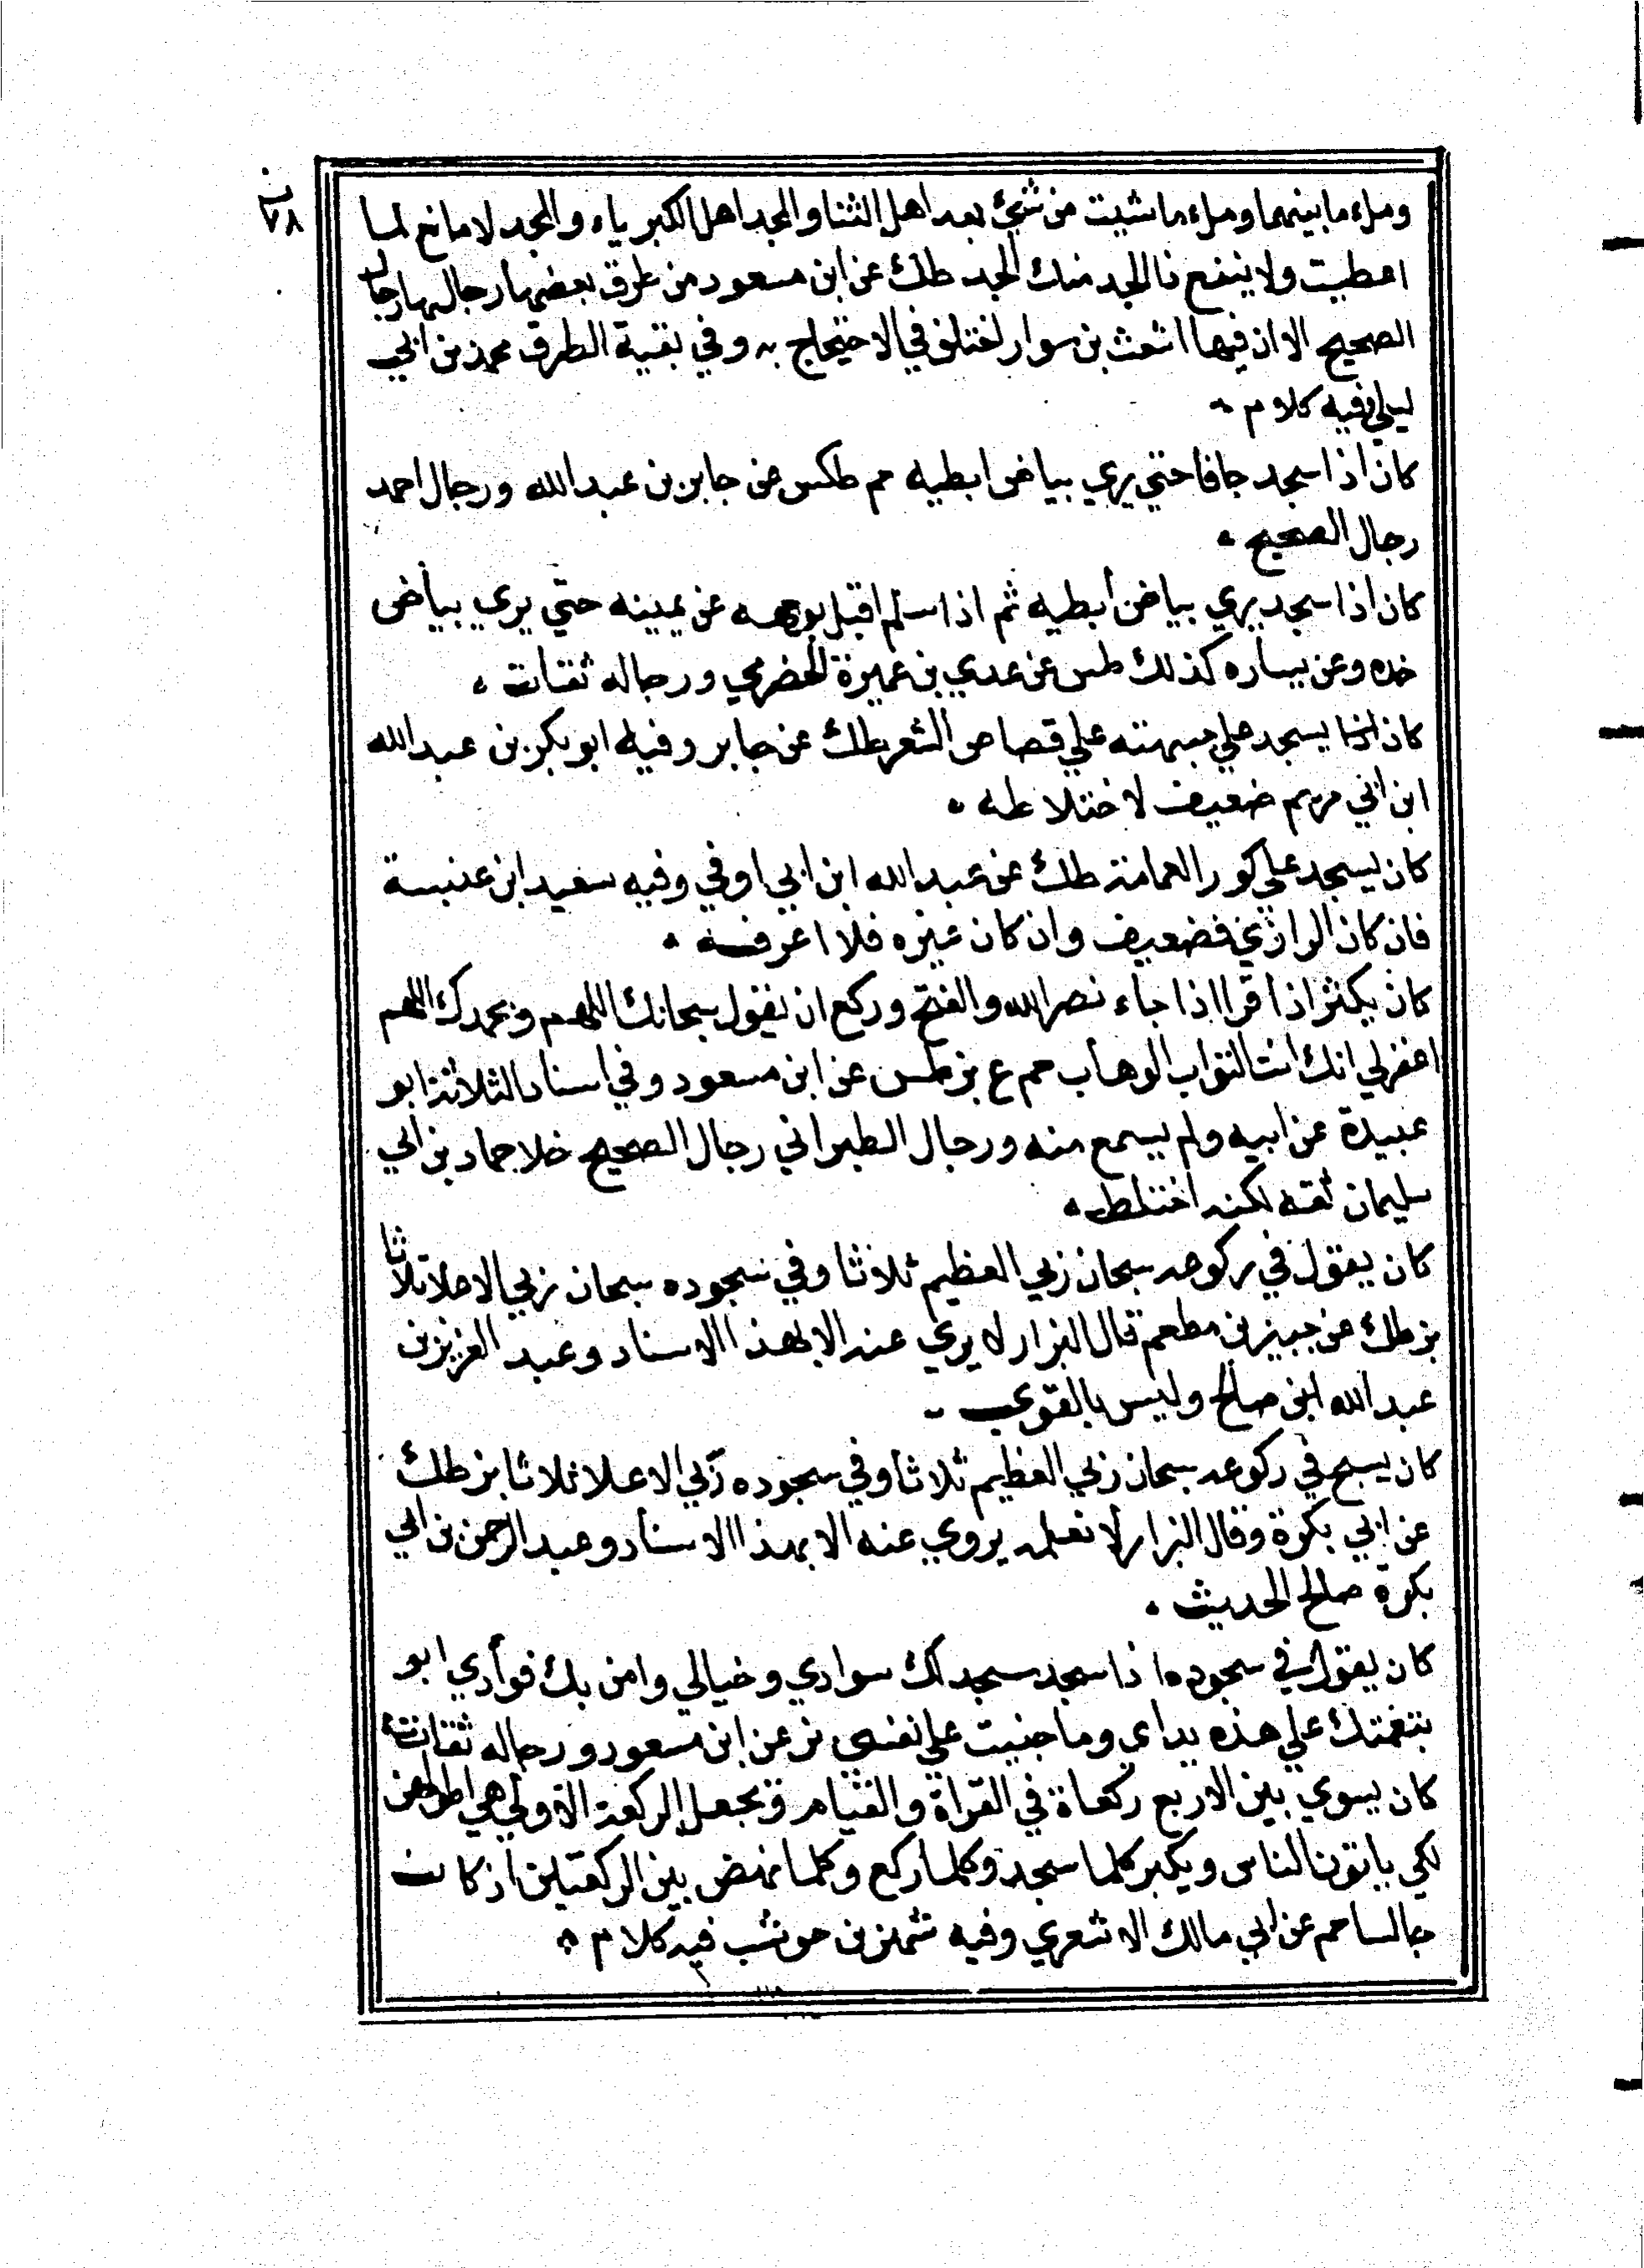 ٧٨
وملء ما بينهما وملء ما شيت من شئ بعد اهل الثنا والمجد اهل الكبرياء والمجد لا مانع لما
اعطيت ولا ينفع ذا الجد منك الجد طك عن ابن مسعود من طرق بعضها رجالها رجال
الصحيح الا ان فيها اشعث بن سوار اختلف في الاحتجاج به وفي بقية الطرق محمد بن ابي
ليلي وفيه كلام
كان اذا سجد جافا حتي يري بياض ابطيه حم طكس عن جابر بن عبد الله ورجال احمد
رجال الصحيح
كان اذا سجد يري بياض ابطيه ثم اذا سلم اقبل بوجهه عن يمينه حتي يري بياض
خده وعن يساره كذلك طس عن عدي بن عميرة الحضرمي ورجاله ثقات
كان يسجد علي جبهته علي قصاص الشعر طك عن جابر وفيه ابو بكر بن عبد الله
ابن ابي مريم ضعيف لاختلاطه
كان يسجد علي كور العمامة طك عن عبد الله ابن ابي اوفي وفيه سعيد ابن عنبسة
فان كان الرازي فضعيف وان كان غيره فلا اعرفه
كان يكثر اذا قرا اذا جاء نصر الله والفتح وركع ان يقول سبحانك اللهم وبحمدك اللهم
اغفر لي انك انت التواب الوهاب حم ع بز طس عن ابن مسعود وفي اسناد الثلاثة ابو
عبيدة عن ابيه ولم يسمع منه ورجال الطبراني رجال الصحيح خلا حماد بن ابي
سليمان ثقة لكنه اختلط
كان يقول في ركوعه سبحان ربي العظيم ثلاثا وفي سجوده سبحان ربي الاعلا ثلاثا
بز طك عن جبير بن مطعم قال البزار لا يري عنه الا بهذا الاسناد وعبد العزيز بن
عبد الله ابن صالح وليس بالقوي
كان يسبح في ركوعه سبحان ربي العظيم ثلاثا وفي سجوده ربي الاعلا ثلاثا بز طك
عن ابي بكرة وقال البزار لا نعلمه يروي عنه الا بهذا الاسناد وعبد الرحمن بن ابي
بكرة صالح الحديث
كان يقول في سجوده اذا سجد سجد لك سوادي وخيالي وامن بك فوأدي ابو
بنعمتك علي هذه يداي وما جنيت علي نفسي بز عن ابن مسعود ورجاله ثقات
كان يسوي بين الاربع ركعاة في القراة والقيام ويجعل الركعة الاولي هي اطولهن
لكي ياتون الناس ويكبر كلما سجد وكلما ركع وكلما نهض بين الركعتين اذ كان
جالسا حم عن ابي مالك الاشعري وفيه شهر بن حوشب فيه كلام